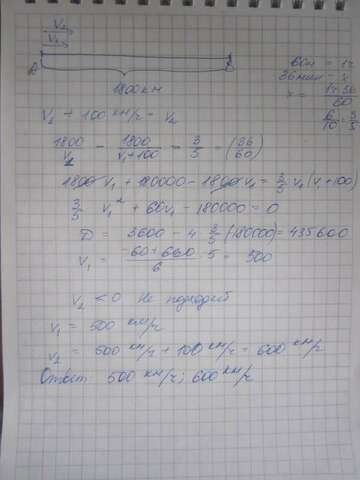 V₂
V₁
A B
1800 км
60м = 1ч
36мин - x
x = 1·36/60
6/10 = 3/5
V₁ + 100 км/ч = V₂
1800/V₁ - 1800/V₁+100 = 3/5 - (36/60)
1800 V₁ + 180000 - 1800 V₁ = 3/5 V₁ (V₁+100)
3/5 V₁² + 60V₁ - 180000 = 0
D = 3600 - 4 3/5 (180000) = 435600
V₁ = -60+660/6 · 5 = 500
V₂ < 0 Не подходит
V₁ = 500 км/ч
V₂ = 500 км/ч + 100 км/ч = 600 км/ч
Ответ 500 км/ч; 600 км/ч